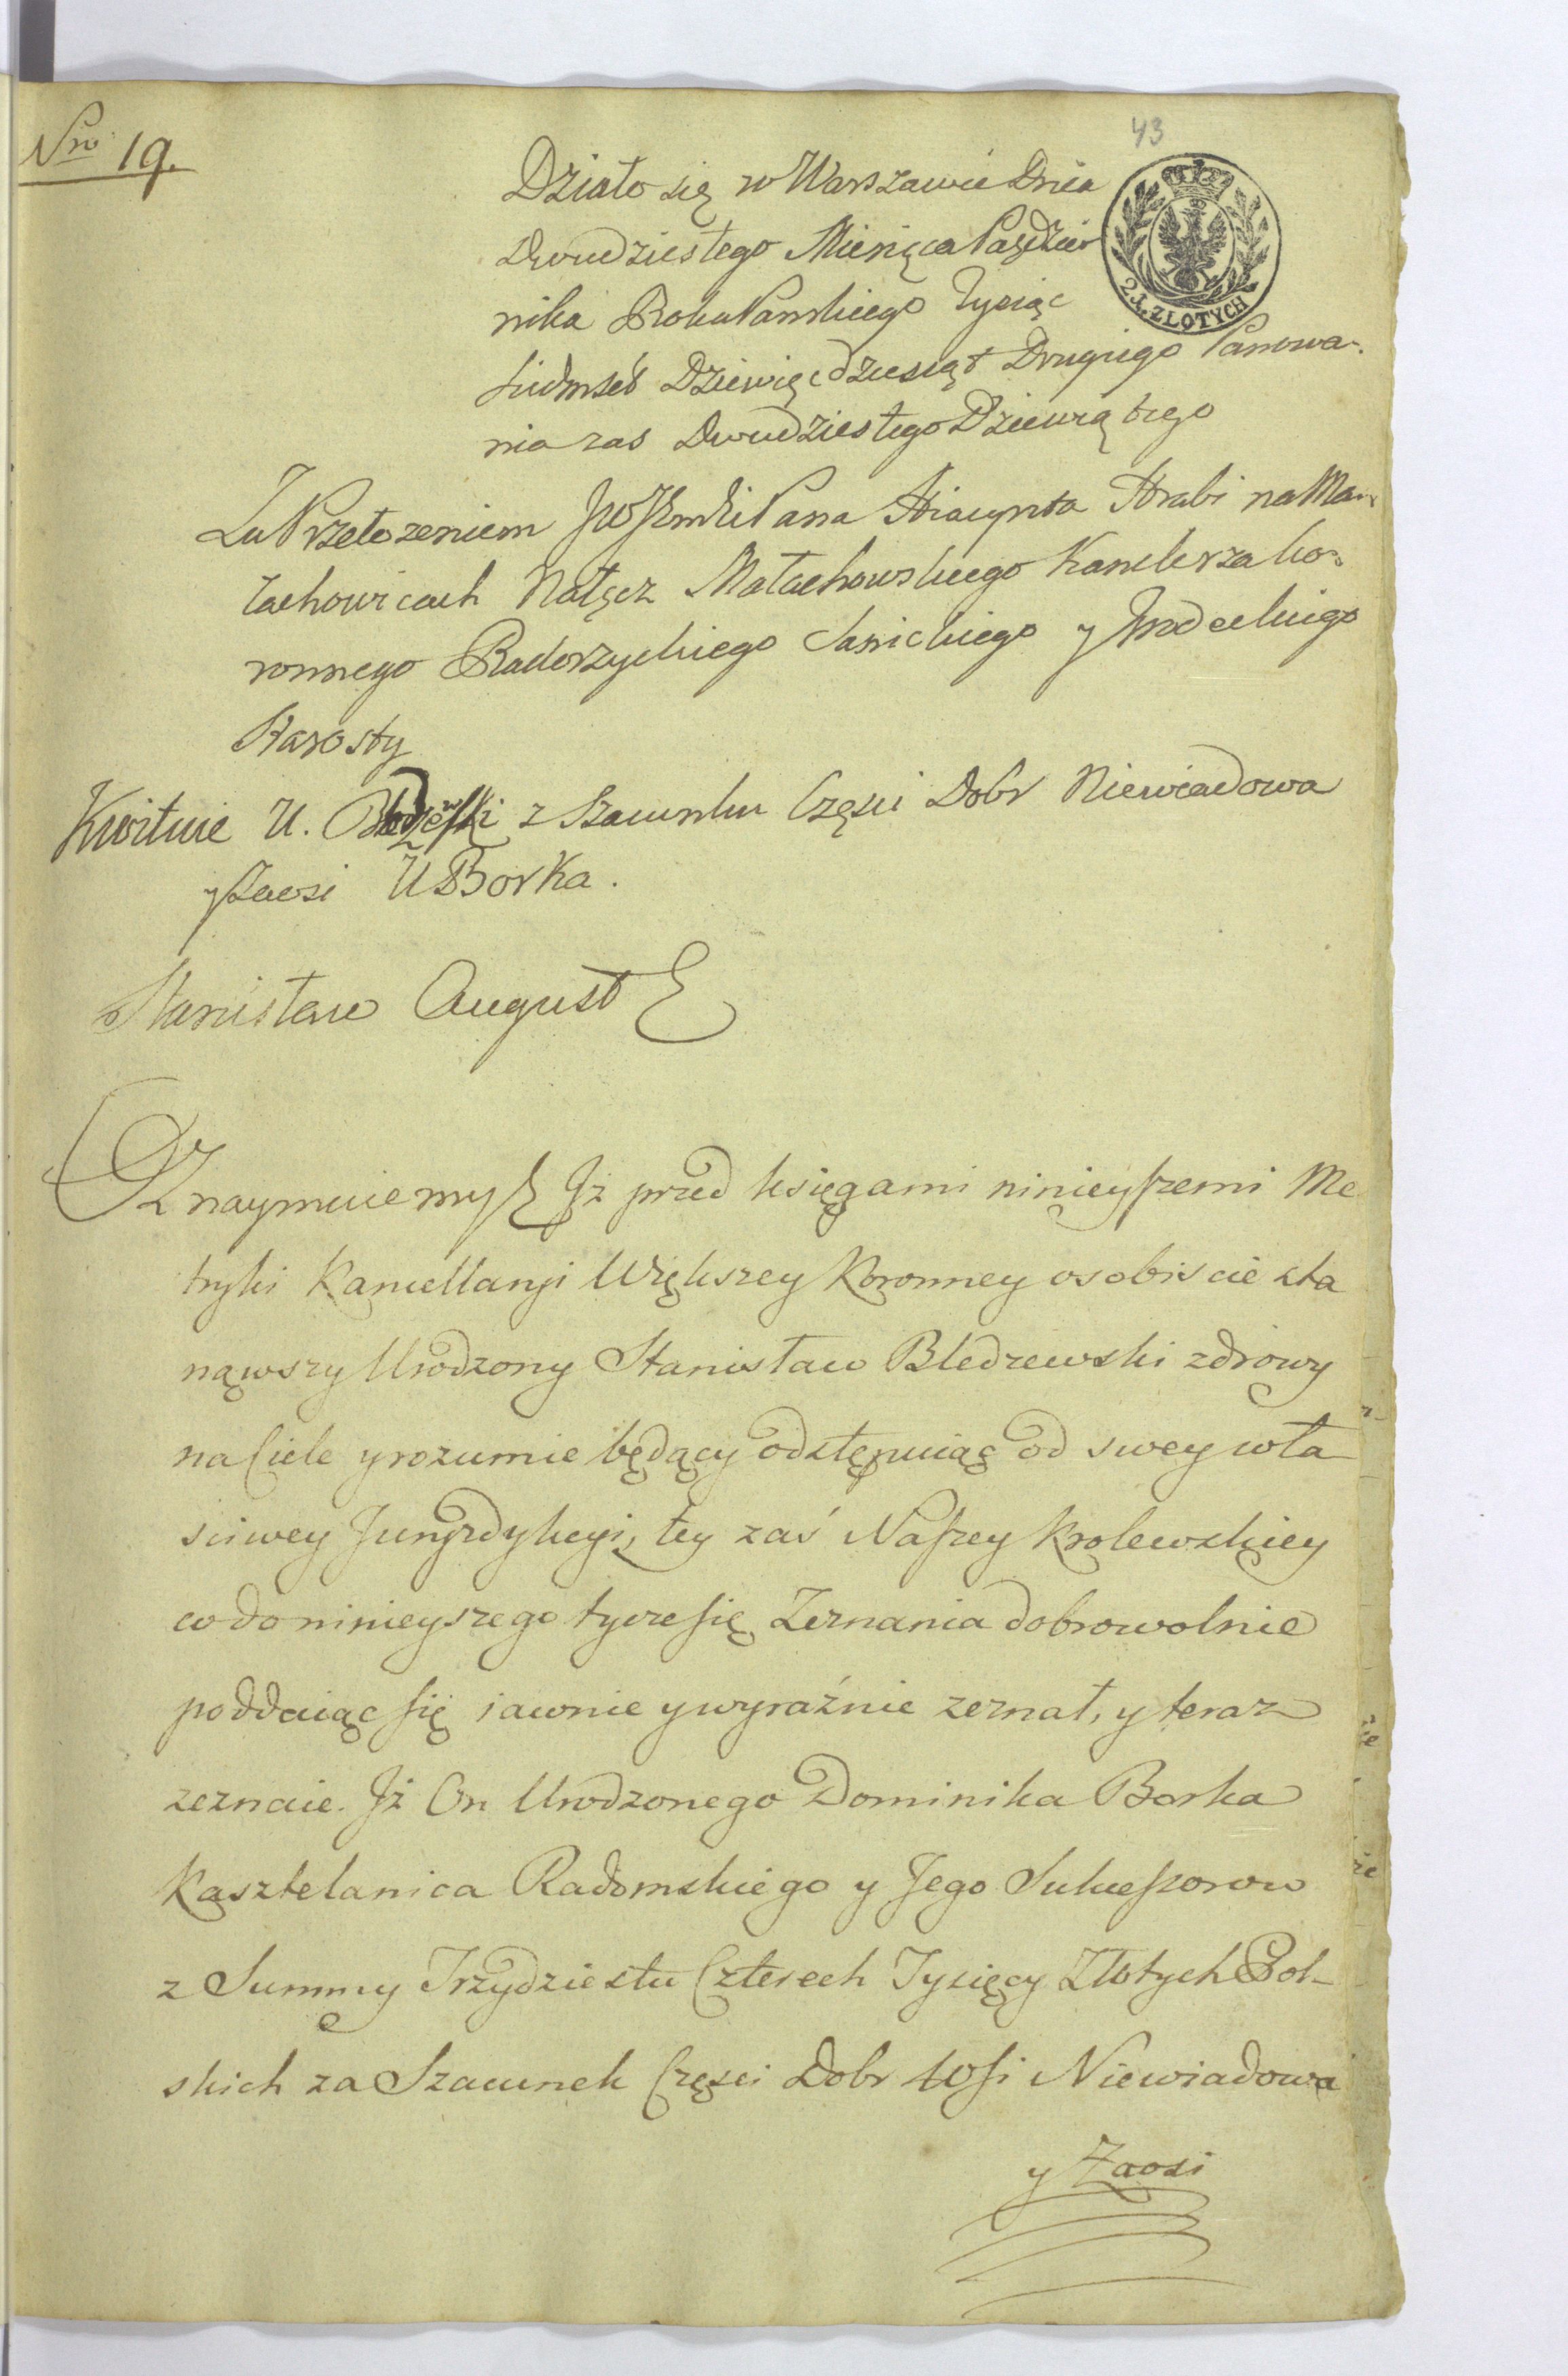 Nro 19.
43
Działo się w Warszawie Dnia
Dwudziestego Miesiąca Pazdzier
nika Roku Panskiego Tysiąc
Siedmset Dziewięcdziesiąt Drugiego Panowa-
nia zas Dwudziestego Dziewiątego
2. ZŁOTYCH
Za Przełozeniem Pana Hiacynta Hrabi na Ma-
łachowicach Nałęcz Małachowskiego Kanclerza Ko-
ronnego Radoszyckiego Sanickiego y Grodeckiego
Starosty
Kwituie U. z Szacunku Częsci Dobr Niewiadowa
y Zaosi U Borka.
Stanisław August
Oznaymuiemy Iż przed księgami ninieyszemi Me
tryki Kancellaryi Większey Koronney osobiscie sta
nąwszy Urodzony Stanisław Bledzewski zdrowy
na Ciele y rozumie będący odstępuiąc od swey wła
sciwey Juryzdykcyi, tey zaś Naszey Krolewskiey
co do ninieyszego tycze się Zeznania dobrowolnie
poddaiąc się iawnie y wyraźnie zeznał, y teraz
zeznaie. Iż On Urodzonego Dominika Borka
Kasztelanica Radomskiego y Jego Sukcessorow
z Summy Trzydziestu Czterech Tysięcy Złotych Pol-
skich za Szacunek Częsci Dobr Wsi Niewiadowa
y Zaosi